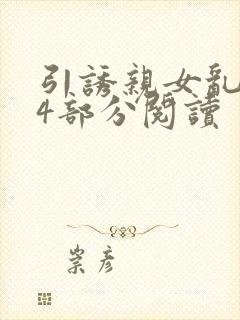 引誘親女亂
4部分閱讀
崇彥